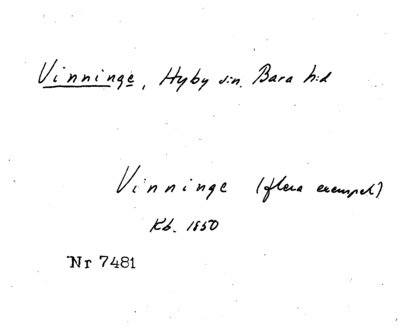 Vinninge, Hyby sn. Bara hd
Vinninge (flera exempel)
Kb. 1850
Nr 7481